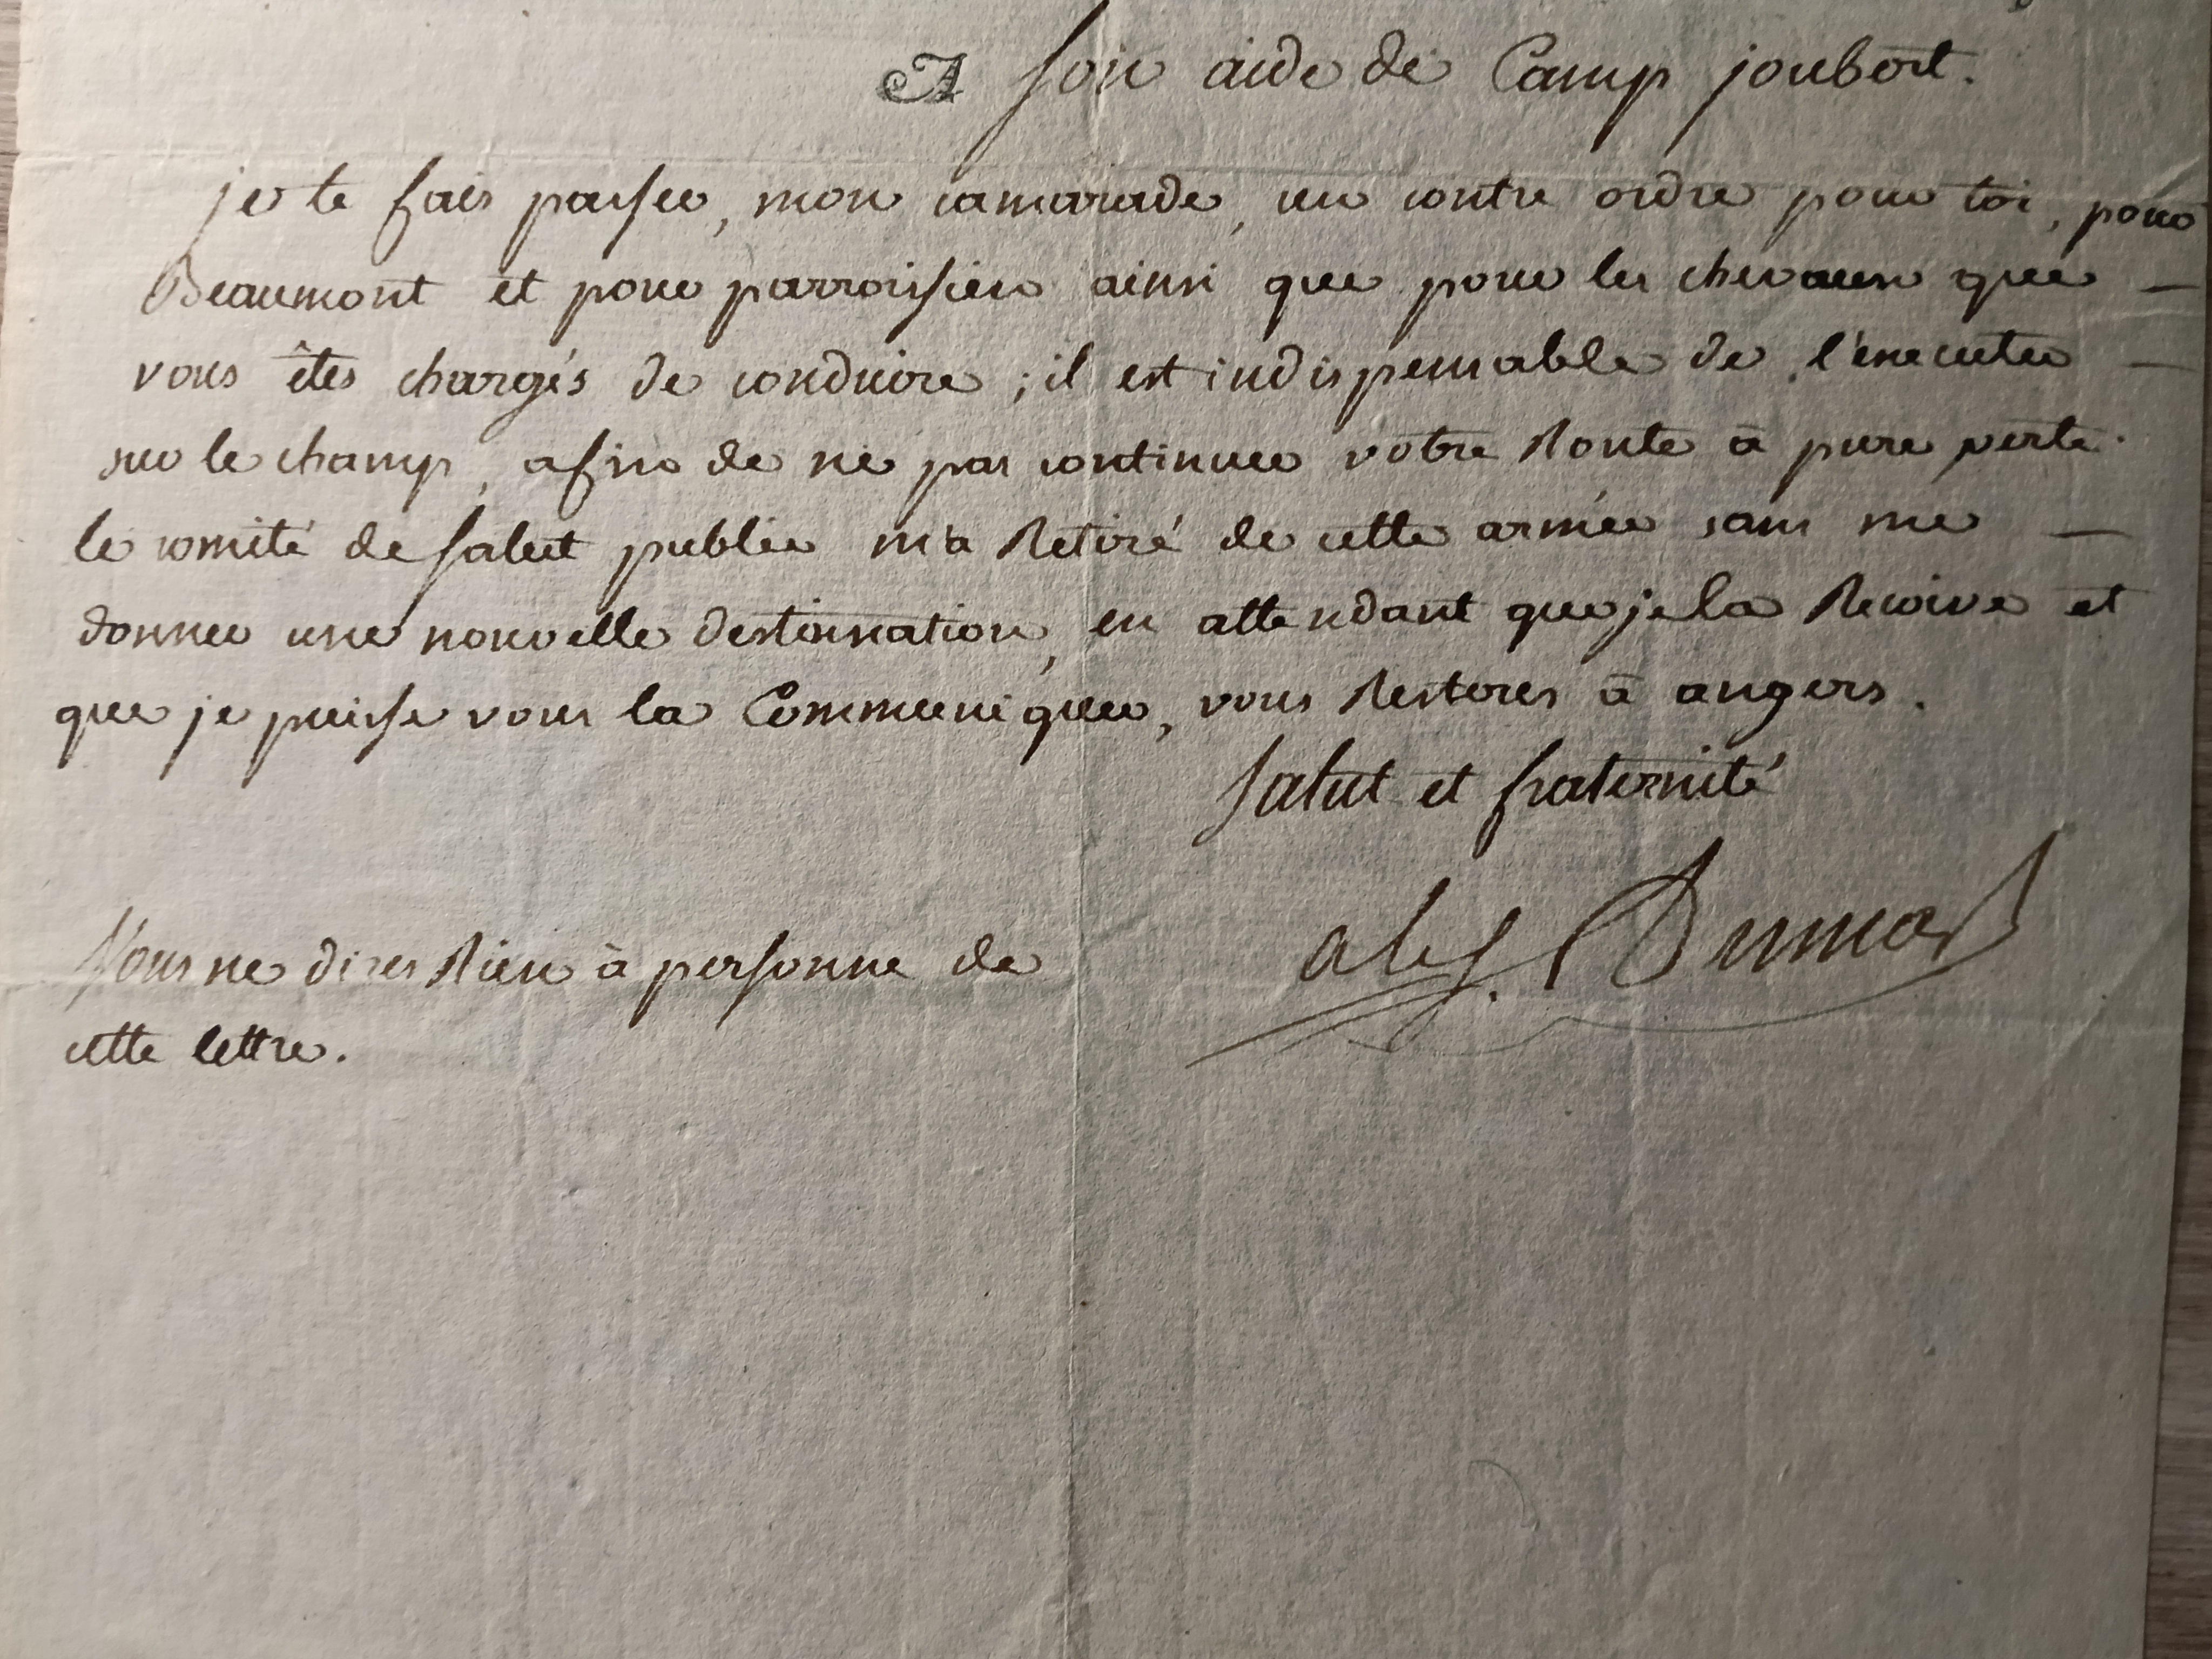 A Son aide de Camp joubert.
je te fais passer, mon camarade, un contre ordre pour toi, pour
Beaumont et pour parroissien ainsi que pour les chevaux que -
vous êtes chargés de conduire ; il est indispensable de l'executer -
sur le champ, afin de ne pas continuer votre Route à pure perte.
le comité de salut public m'a Retiré de cette armée sans me -
donner une nouvelle destination, en attendant que je la Recoive et
que je puisse vous la Communiquer, vous Resteres à angers.
Salut et fraternité
Vous ne dires Rien à personne de
cette lettre.
alex. Dumas